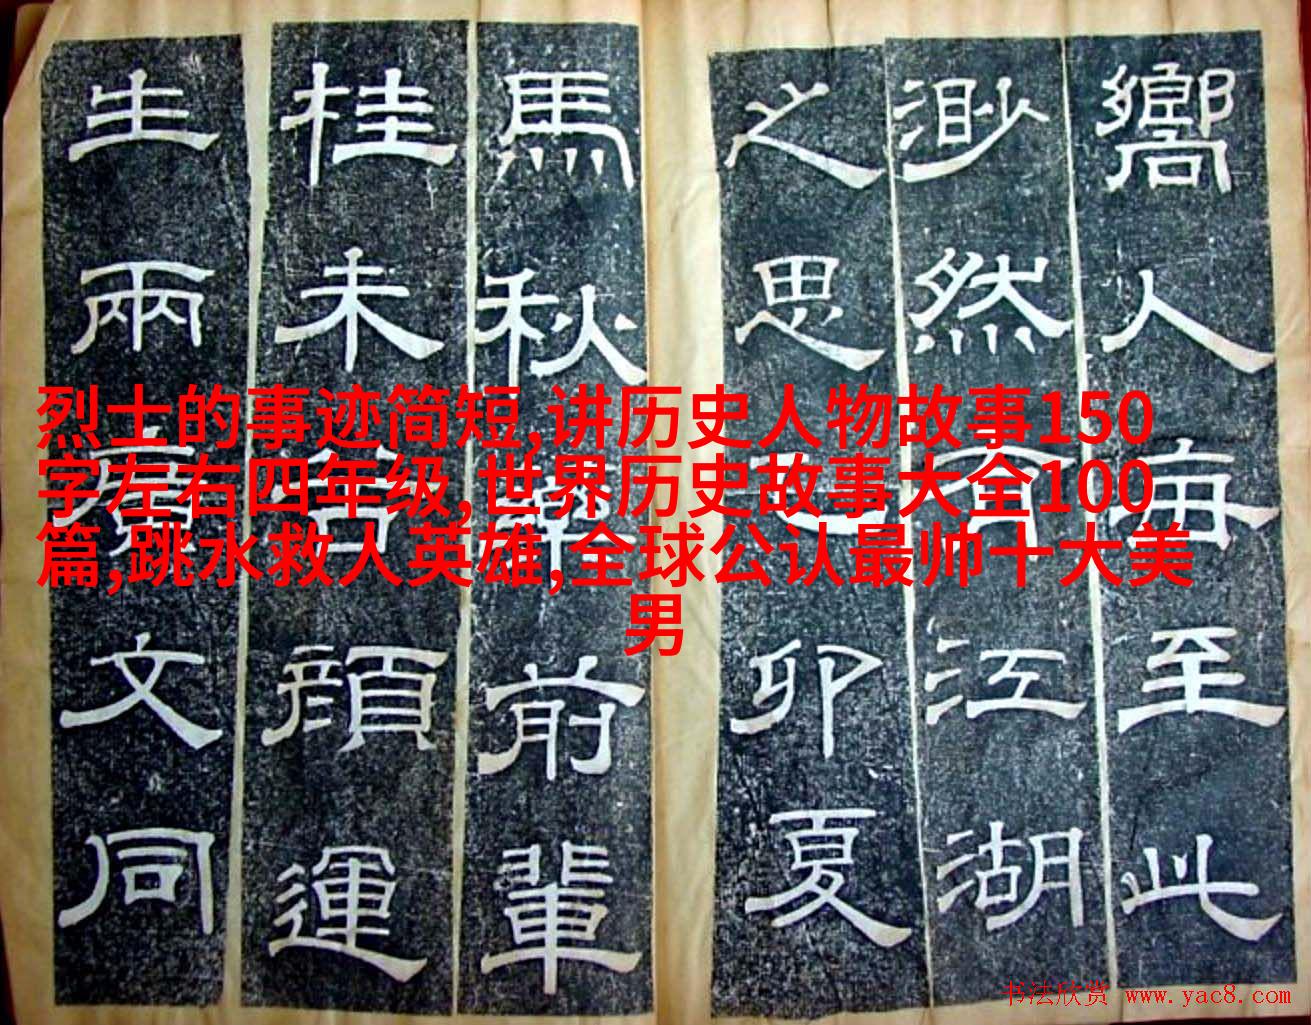 嚮人海至此
渺然有江湖
之思乙卯夏
馬秋藥前輩
桂未谷顔運
生兩廣文同
烈士的事迹简短,讲历史人物故事150
字左右四年级,世界历史故事大全100
篇,跳水救人英雄,全球公认最帅十大美
男
书法欣赏 www.yac8.com